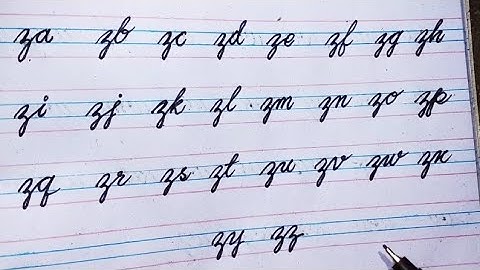 za zb zc zd ze zf zg zh
zi zj zk zl zm zn zo zp
zq zr zs zt zu zv zw zx
zy zz